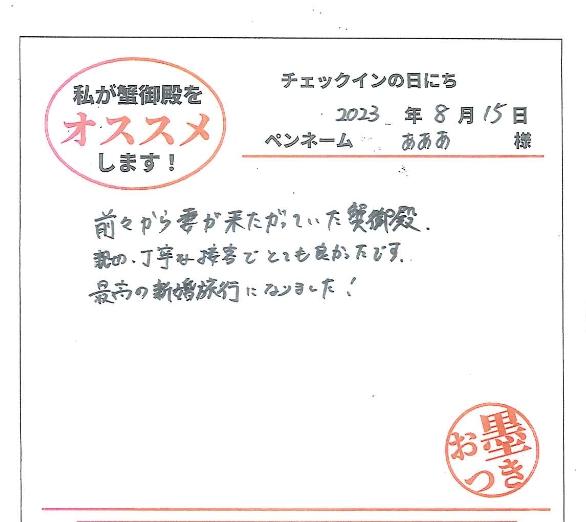 私が蟹御殿を
オススメ
します！
チェックインの日にち
2023年8月15日
ペンネーム あああ 様
前々から妻が来たがっていた蟹御殿。
親切、丁寧な接客でとても良かったです。
最高の新婚旅行になりました！
お墨
つき